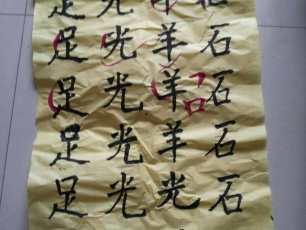 足 光
足 光 羊 石
足 光 羊 石
足 光 羊 石
足 光 光 石